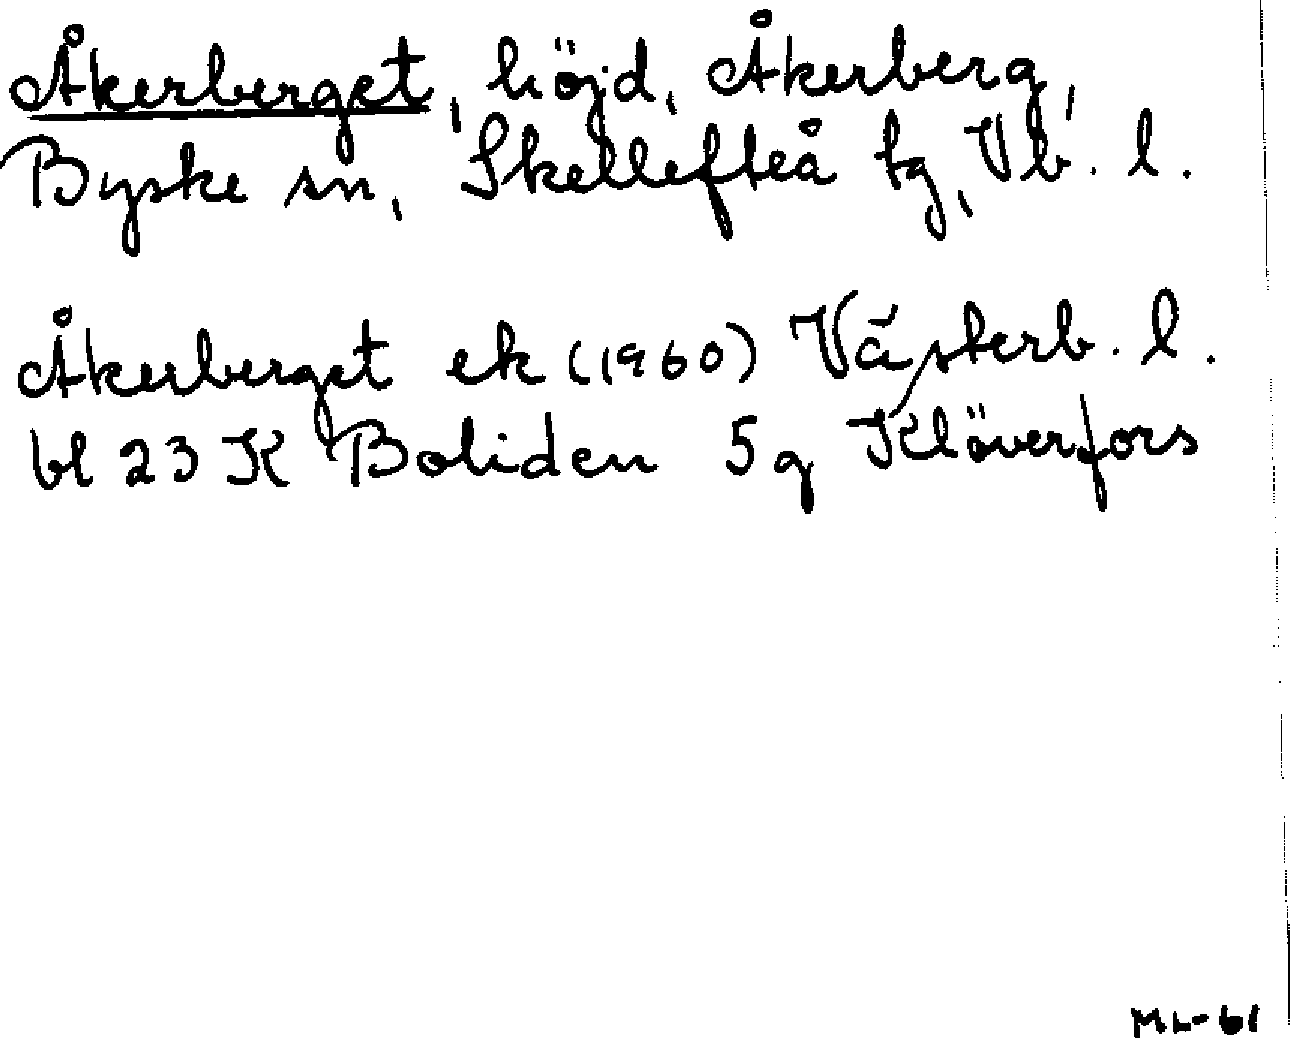 Åkerberget, höjd, Åkerberg,
Byske sn, Skellefteå tg, Vb. l.
Åkerberget ek (1960) Västerb. l.
bl 23 K Boliden 5 g Klöverfors
ML-61